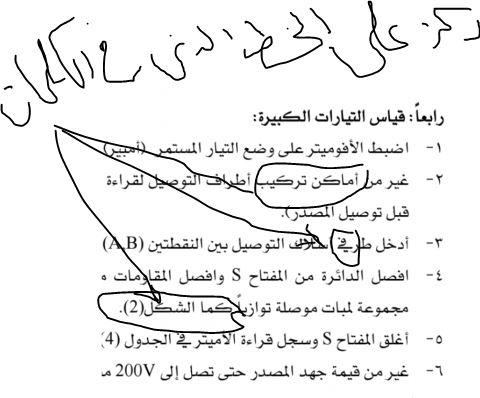 ركز على الخط الذي مع الكلمات
رابعاً: قياس التيارات الكبيرة:
١- اضبط الأفوميتر على وضع التيار المستمر (أمبير)
٢- غير من أماكن تركيب أطراف التوصيل لقراءة
قبل توصيل المصدر).
٣- أدخل طرفي أسلاك التوصيل بين النقطتين (A,B)
٤- افصل الدائرة من المفتاح S وافصل المقاومات
مجموعة لمبات موصلة توازياً كما الشكل(2).
٥- أغلق المفتاح S وسجل قراءة الأميتر في الجدول (4)
٦- غير من قيمة جهد المصدر حتى تصل إلى 200V